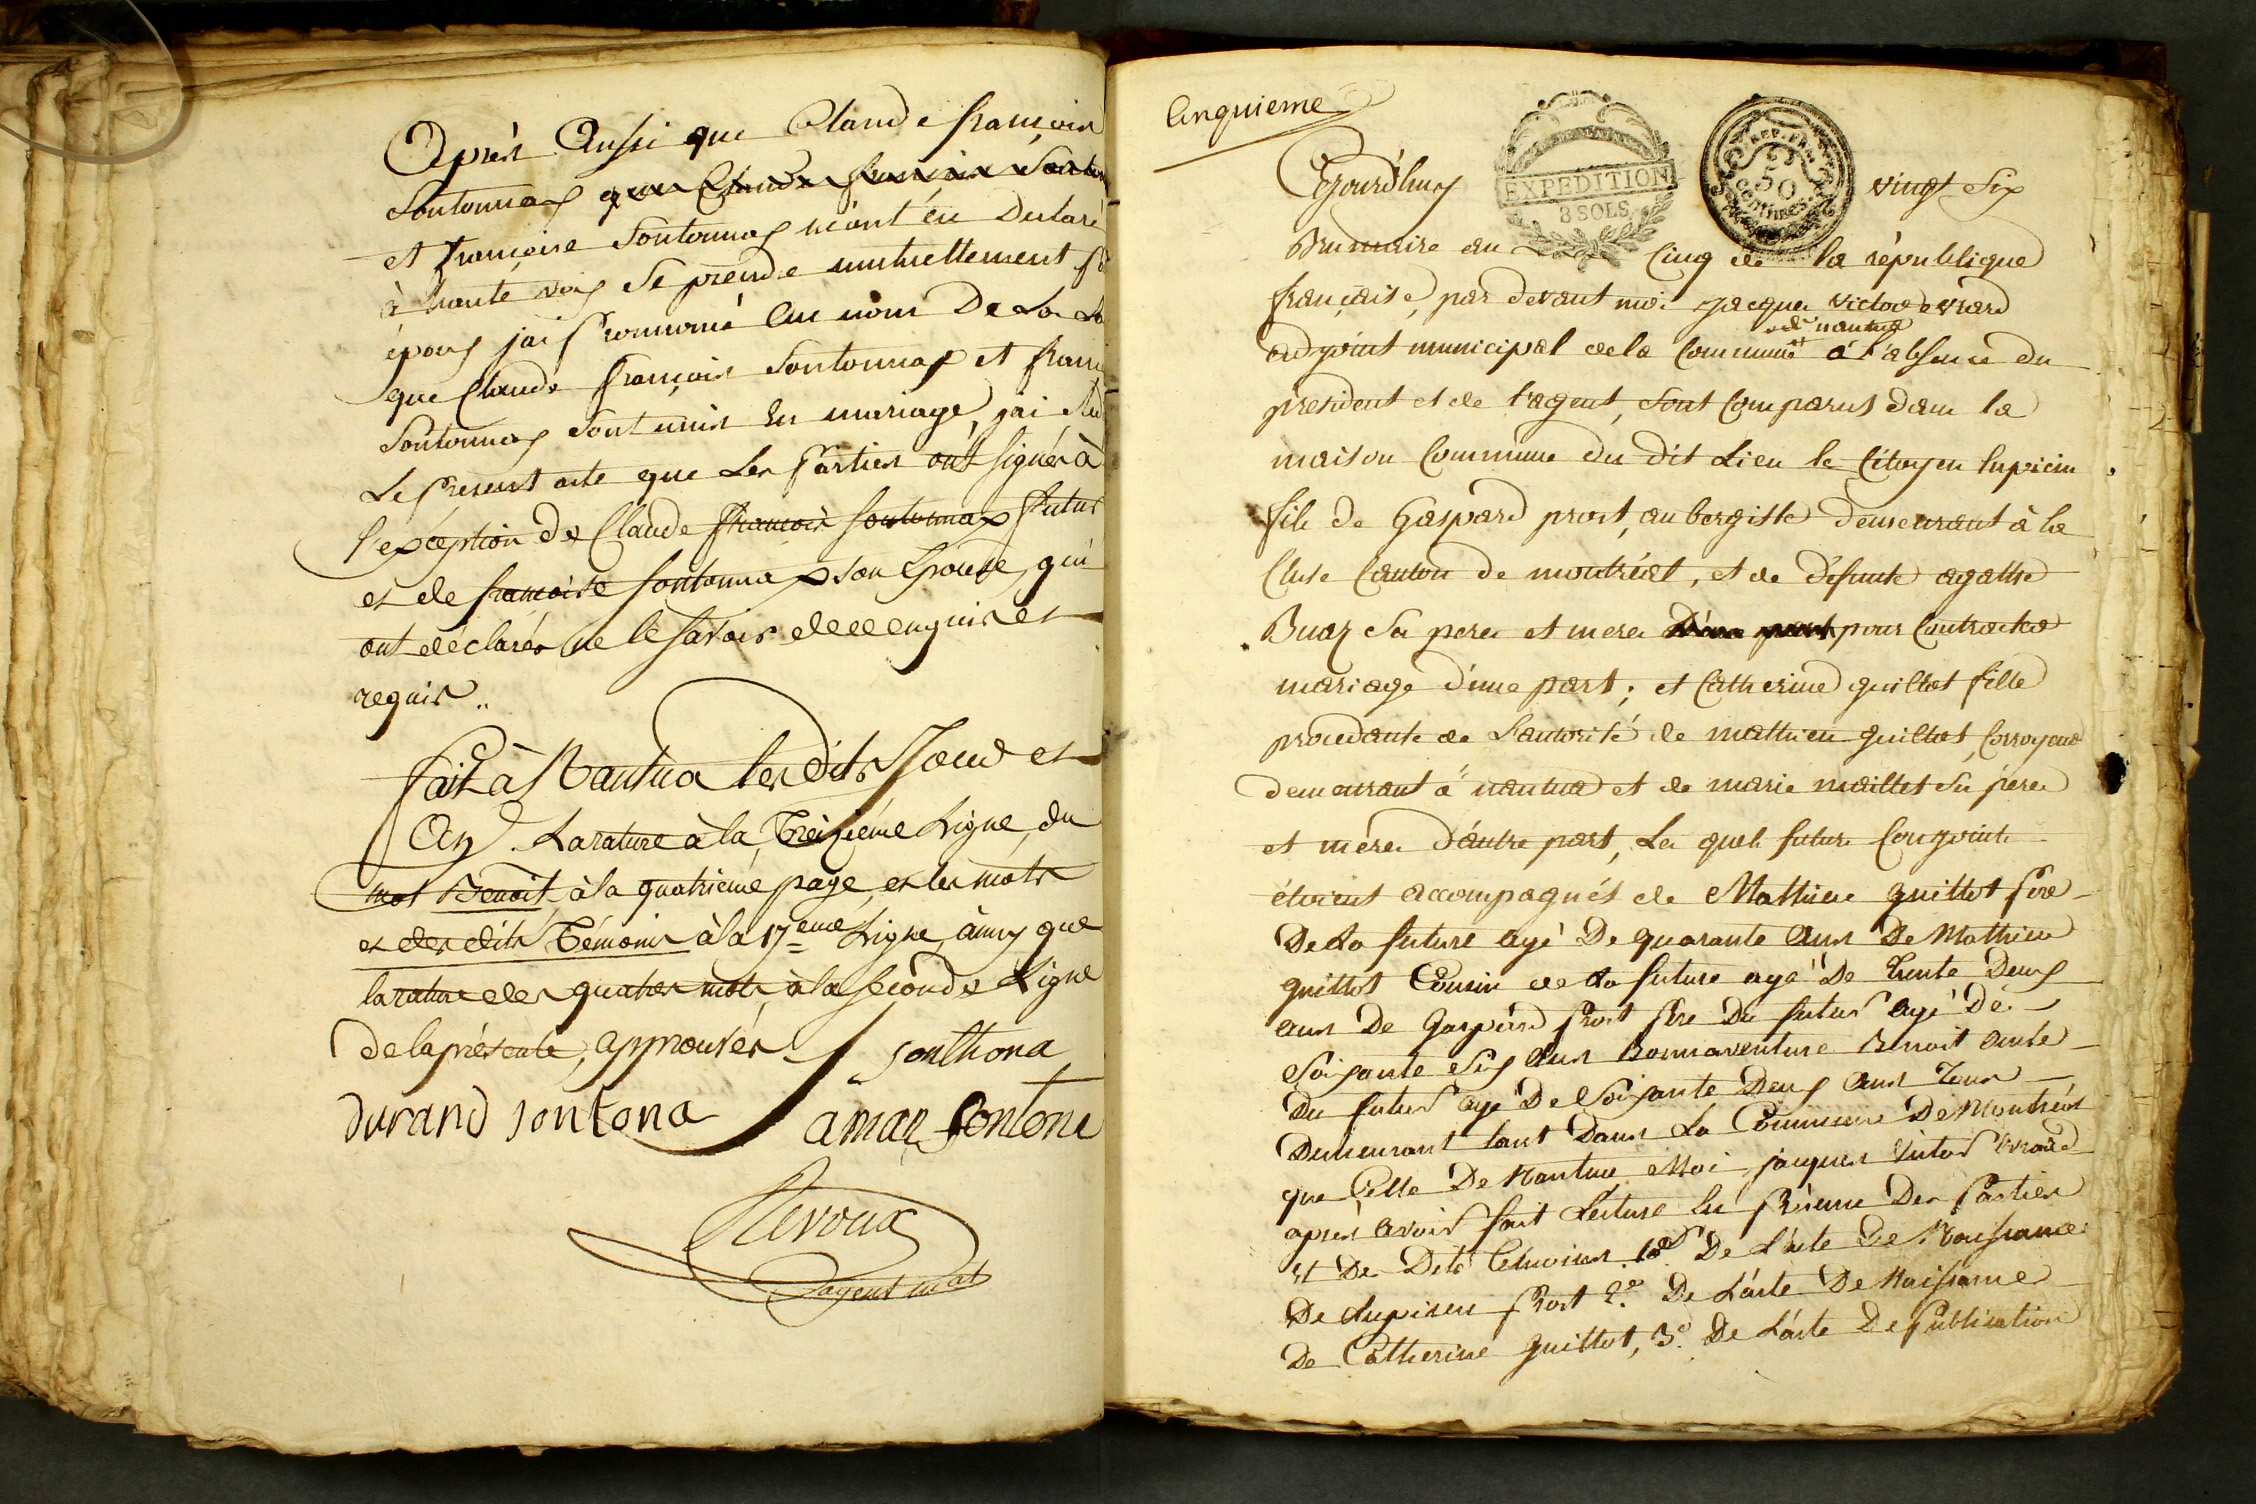 Après Aussi que Claude françois
Sontonnax que Claude françois Sonton
et françoise Sontonnax m'ont eu declaré
à haute voix Se prendre mutuellement p
époux jai prononcé au nom De La Lo
que Claude françois Sontonnax et fran
Sontonnax sont unis En mariage, j'ai
Le present acte que Les parties ont signés à
l'exception de Claude françois sontonnax futur
et de francoise sontonnax son Epouse, qui
ont déclarés ne le savoir de ce enquis et
requis ..
fait à Nantua les dits Jour et
An. La rature à la treizieme Ligne, du
mot Benoit, à la quatrieme page, et les mots
et des dits Témoins à la 17eme Ligne, ainsy que
la rature des quatres mots à la seconde Ligne
de la présente, approuvés
sonthona
durand sontona
aman sontona
Revoux
agent mal
Cinquieme
EXPEDITION
8 SOLS
REP. FRA.
50
centimes
Cejourd'huy vingt Six
Brumaire an Cinq de la république
française, par devant moi jacques victor evrard
adjoint municipal de la Commune de nantua et à l'absence du
president et de l'agent, sont Comparus dans la
maison Commune du dit Lieu le Citoyen lupicin
fils de Gaspard prost, aubergiste demeurant à la
Cluse Canton de montréal, et de défunte agathe
Buaz Ses pere et mere D'une part pour Contracter
mariage d'une part; et Catherine guillot fille
procedante de L'autorité de mathieu guillot, Corroyeur
demeurant à nantua et de marie maillet Ses père
et mère d'autre part, Les quels futurs Conjoints
étoient accompagnés de Mathieu guillot père
De La future agé De quarante Ans De Mathieu
guillot Cousin de La future agé De trente Deux
ans De Gaspard prost père Du futur agé De
Soixante Six Ans Bonnaventure Benoit
Du futur agé De Soixante Deux Ans Tous
Demeurant tant Dans La Commune De Montréal
que Celle De Nantua Moi jacques Victor Evrard
après avoir fait Lecture En présence Des parties
et Des Dits témoins 1o De L'acte De Naissance
De Lupicin prost 2o De L'acte De Naissance
De Catherine guillot, 3o De L'acte De publication